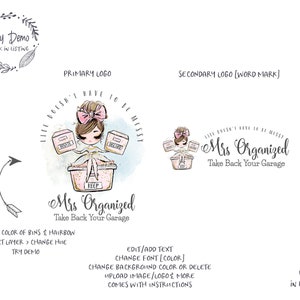 y Demo
K IN LISTING
PRIMARY LOGO
SECONDARY LOGO [WORD MARK]
LIFE DOESN'T HAVE TO BE MESSY
KEEP
Mrs Organized
Take Back Your Garage
LIFE DOESN'T HAVE TO BE MESSY
Mrs Organized
Take Back Your Garage
COLOR OF BINS & HAIRBOW
CT LAYER > CHANGE HUE
TRY DEMO
EDIT/ADD TEXT
CHANGE FONT [COLOR]
CHANGE BACKGROUND COLOR OR DELETE
UPLOAD IMAGE/LOGO & MORE
COMES WITH INSTRUCTIONS